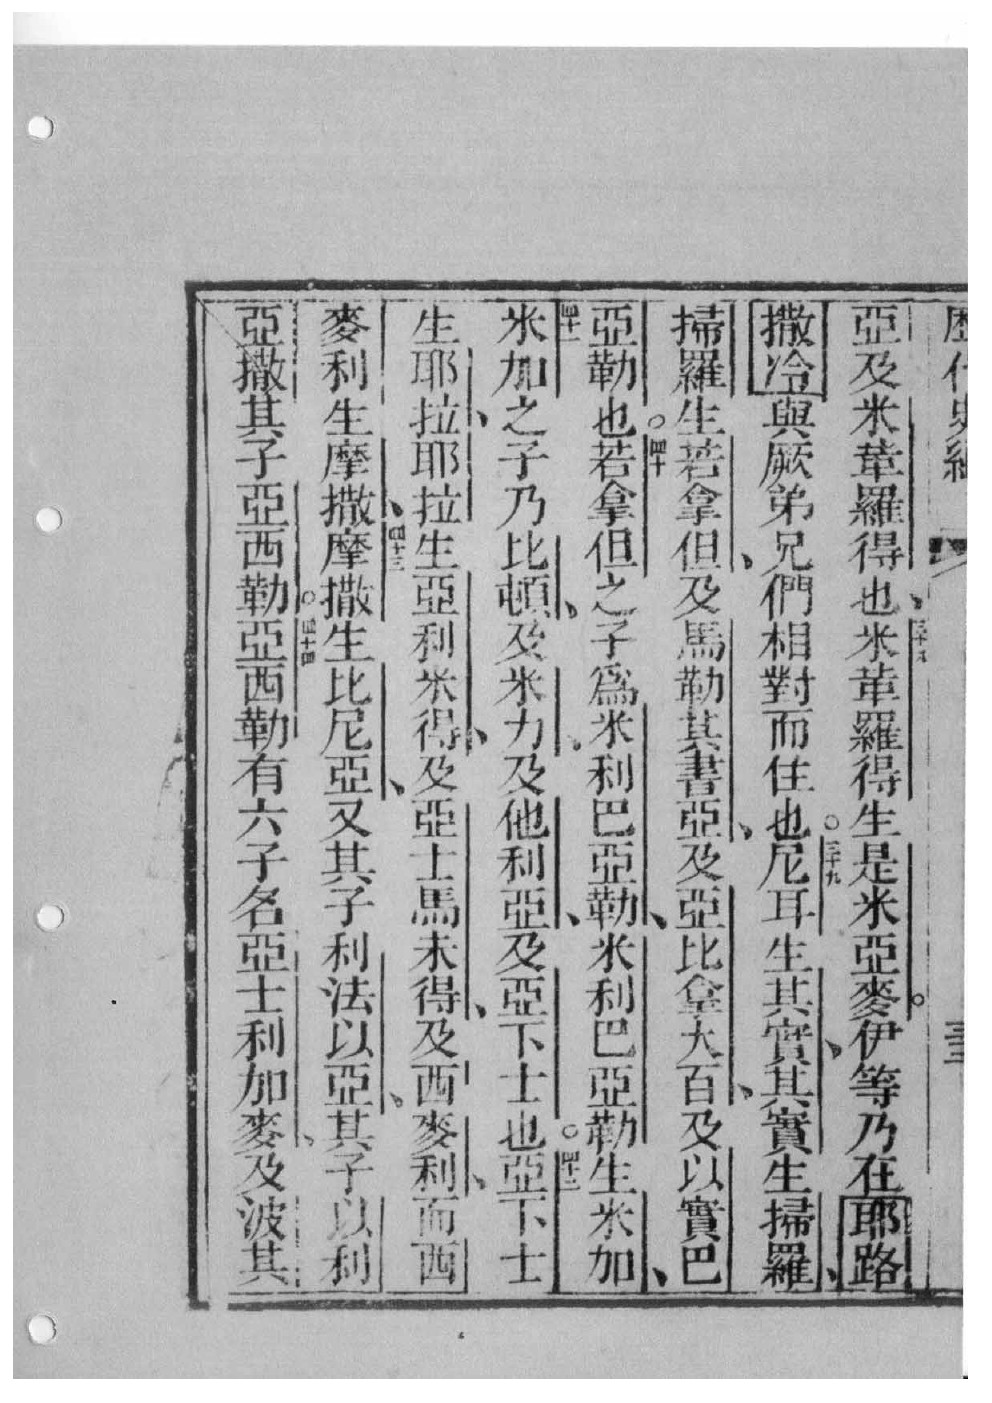 歷代史紀
亞及米韋羅得也、三十八米韋羅得生是米亞麥。伊等乃在耶路
撒冷與厥弟兄們相對而住也。三十九尼耳生其實、其實生掃羅、
掃羅生若拿但、及馬勒其書亞、及亞比拿大百、及以實巴
亞勒也。四十若拿但之子為米利巴亞勒、米利巴亞勒生米加、
四十一米加之子乃比頓、及米力、及他利亞、及亞下士也。四十二亞下士
生耶拉、耶拉生亞利米得、及亞士馬未得、及西麥利、而西
麥利生摩撒、四十三摩撒生比尼亞、又其子利法以亞、其子以利
亞撒其子亞西勒。四十四亞西勒有六子名亞士利加麥、及波其